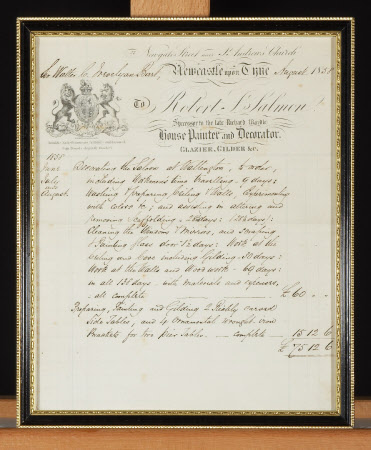 72 Newgate Street near St Andrew's Church
Sir Walter C Trevelyan Bart. Newcastle upon Tyne August 1858
To Robert S. Salmon
Successor to the late Richard
House Painter and Decorator
GLAZIER, GILDER &C.
1858
June Decorating the Saloon at Wallington,
July including time travelling 6 days;
August. washing & preparing ceiling & walls, Experimenting
with colors &c; and assisting in altering and
scaffolding
Cleaning the & Mirrors, and scraping
& Painting floor days: Work at the
ceiling and Cove including Gilding days:
Work at the Walls and Woodwork 69 days:
in all 135 days with materials and expenses,
all complete £60 " "
Preparing, Painting and Gilding 2 Richly carved
Side Tables, and 4 Ornamental Wrought iron
Brackets for two Pier Tables. complete 15 12 6
£75 12 6